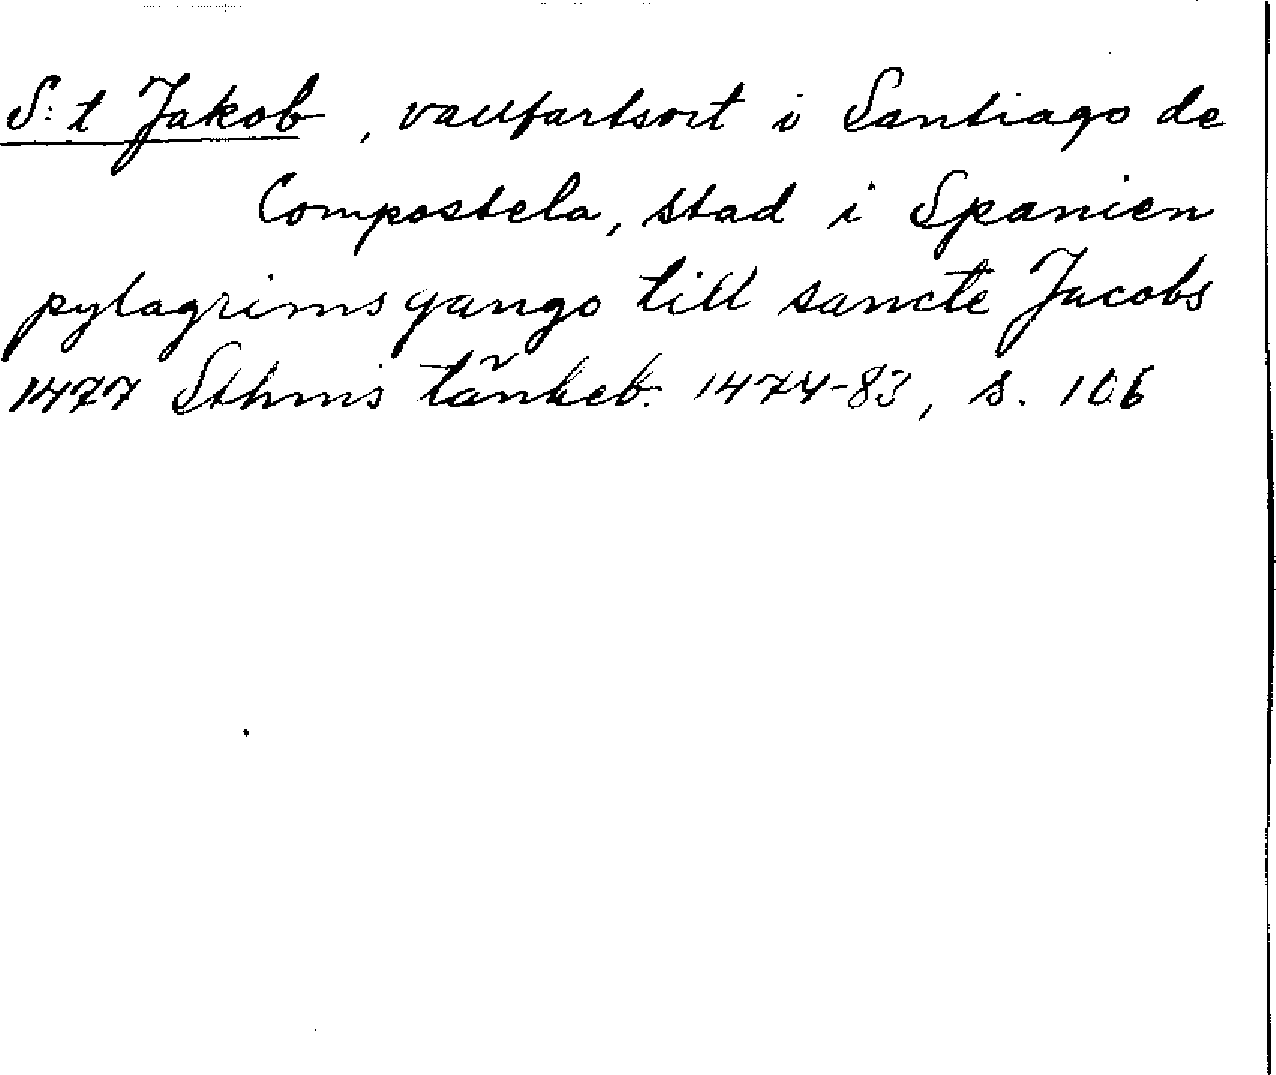 S:t Jakob, vallfartsort i Santiago de
Compostela, stad i Spanien
pylagrims gango till sancte Jacobs
1477 Sthms tänkeb. 1474-83, s. 106